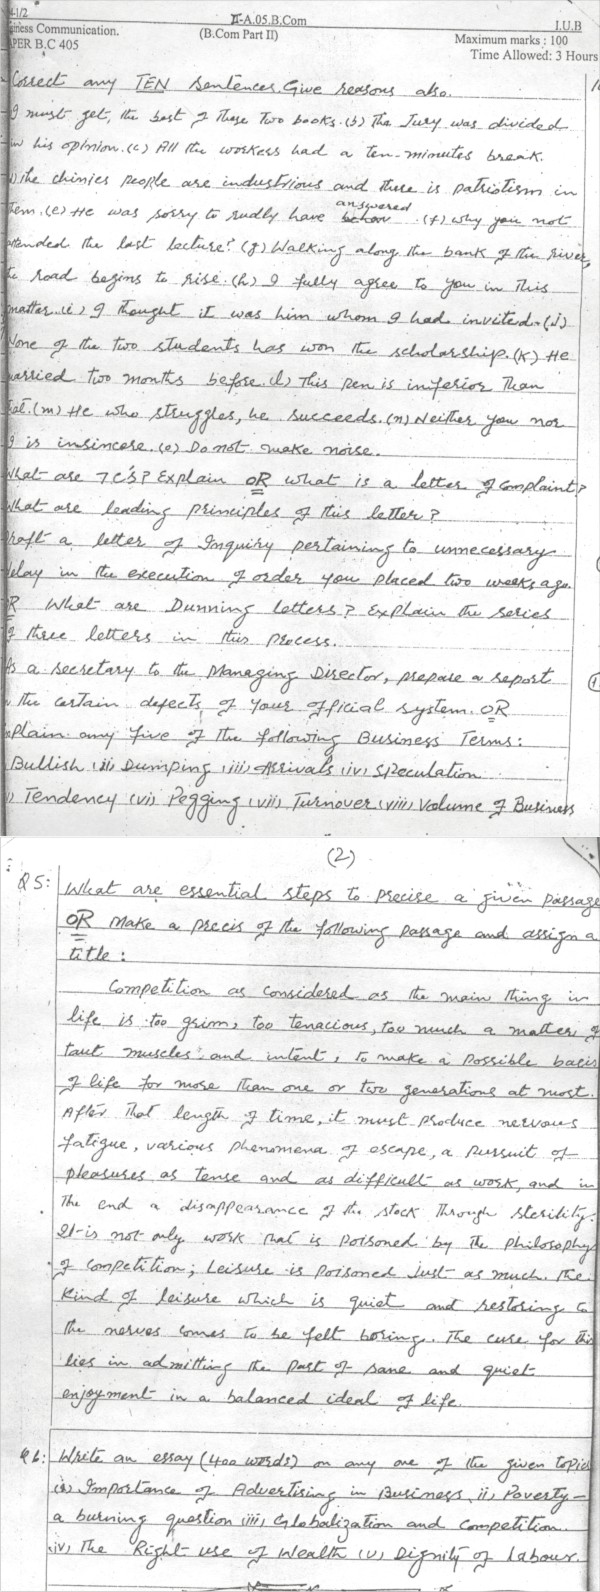 II-A.05.B.Com
I.U.B
Business Communication.
(B.Com Part II)
Maximum marks : 100
PAPER B.C 405
Time Allowed: 3 Hours
Correct any TEN sentences. Give reasons also.
I must get, the best of these two books. (b) The Jury was divided
in his opinion. (c) All the workess had a ten-minutes break.
The chinies people are industrious and there is patriotism in
them. (e) He was sorry to rudly have answered. (f) why you not
attended the last lecture? (g) Walking along the bank of the river,
the road begins to rise. (h) I fully agree to you in this
matter. (i) I thought it was him whom I had invited. (j)
None of the two students has won the scholarship. (k) He
married two months before. (l) This pen is inferior than
that. (m) He who struggles, he succeeds. (n) Neither you nor
I is insincere. (o) Do not make noise.
What are 7C's? Explain OR what is a letter of complaint?
What are leading principles of this letter?
Draft a letter of Inquiry pertaining to unnecessary
delay in the execution of order you placed two weeks ago.
OR What are Dunning letters? Explain the series
of three letters in this process.
As a secretary to the Managing Director, prepare a report
the certain defects of your official system. OR
Explain any five of the following Business Terms:
Bullish (ii) Dumping (iii) Arrivals (iv) Speculation
Tendency (vi) Pegging (vii) Turnover (viii) Volume of Business
(2)
Q5: What are essential steps to precise a given passage
OR Make a precis of the following passage and assign a
title :
Competition as considered as the main thing in
life is too grim, too tenacious, too much a matter of
taut muscles and intent, to make a possible basis
of life for more than one or two generations at most.
After that length of time, it must produce nervous
fatigue, various phenomena of escape, a pursuit of
pleasures as tense and as difficult as work, and in
the end a disappearance of the stock through sterility.
It is not only work that is poisoned by the philosophy
of competition; leisure is poisoned just as much. The
kind of leisure which is quiet and restoring to
the nerves comes to be felt boring. The cure for this
lies in admitting the part of sane and quiet
enjoyment in a balanced ideal of life.
Q6: Write an essay (400 words) on any one of the given topics
(i) Importance of Advertising in Business ii) Poverty-
a burning question iii) Globalization and competition.
iv) The Right use of Wealth (v) Dignity of Labour.